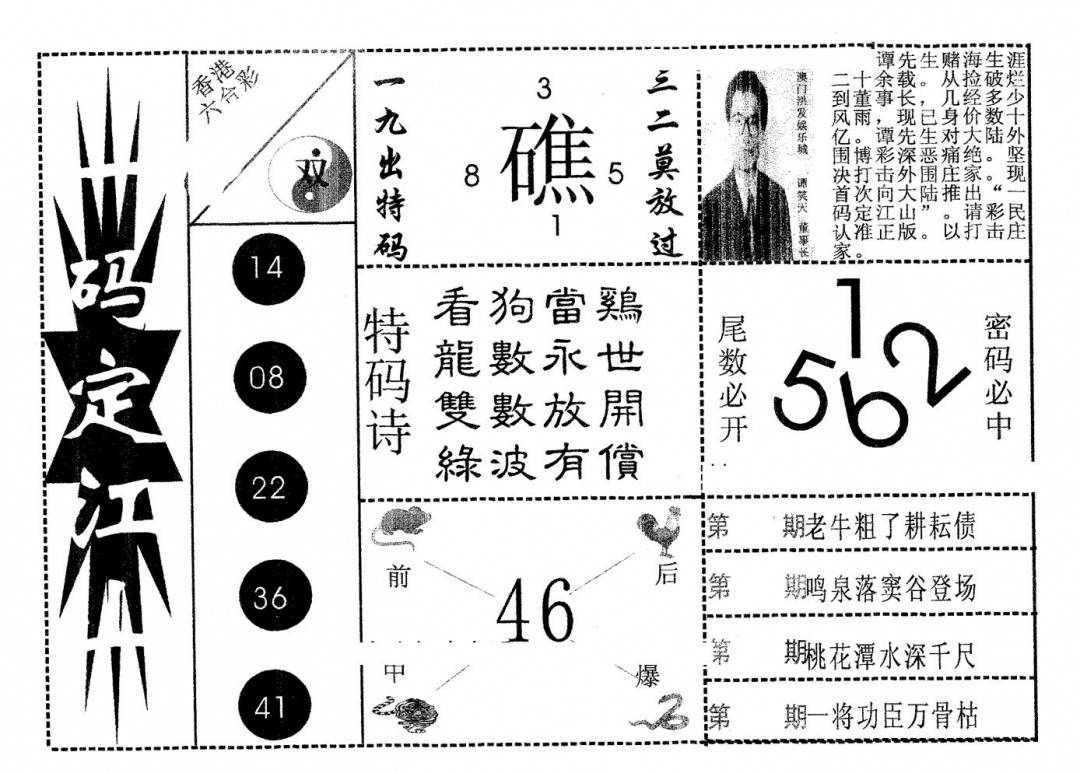 码
定
江
香港
六合彩
双
14
08
22
36
41
一九出特码
3
8
礁
5
1
三二莫放过
澳门洪发娱乐城 谭笑天 董事长
谭先生赌海生涯
二十余载。从捡破烂
到董事长，几经多少
风雨，现已身价数十
亿。谭先生对大陆外
围博彩深恶痛绝。坚
决打击外围庄家。现
首次向大陆推出“一
码定江山”。请彩民
认准正版。以打击庄
家。
特码诗
看狗當鷄
龍數永世
雙數放開
綠波有償
尾数必开
1
5
6
2
密码必中
前
后
46
中
爆
第 期老牛粗了耕耘债
第 期鸣泉落窦谷登场
第 期桃花潭水深千尺
第 期一将功臣万骨枯